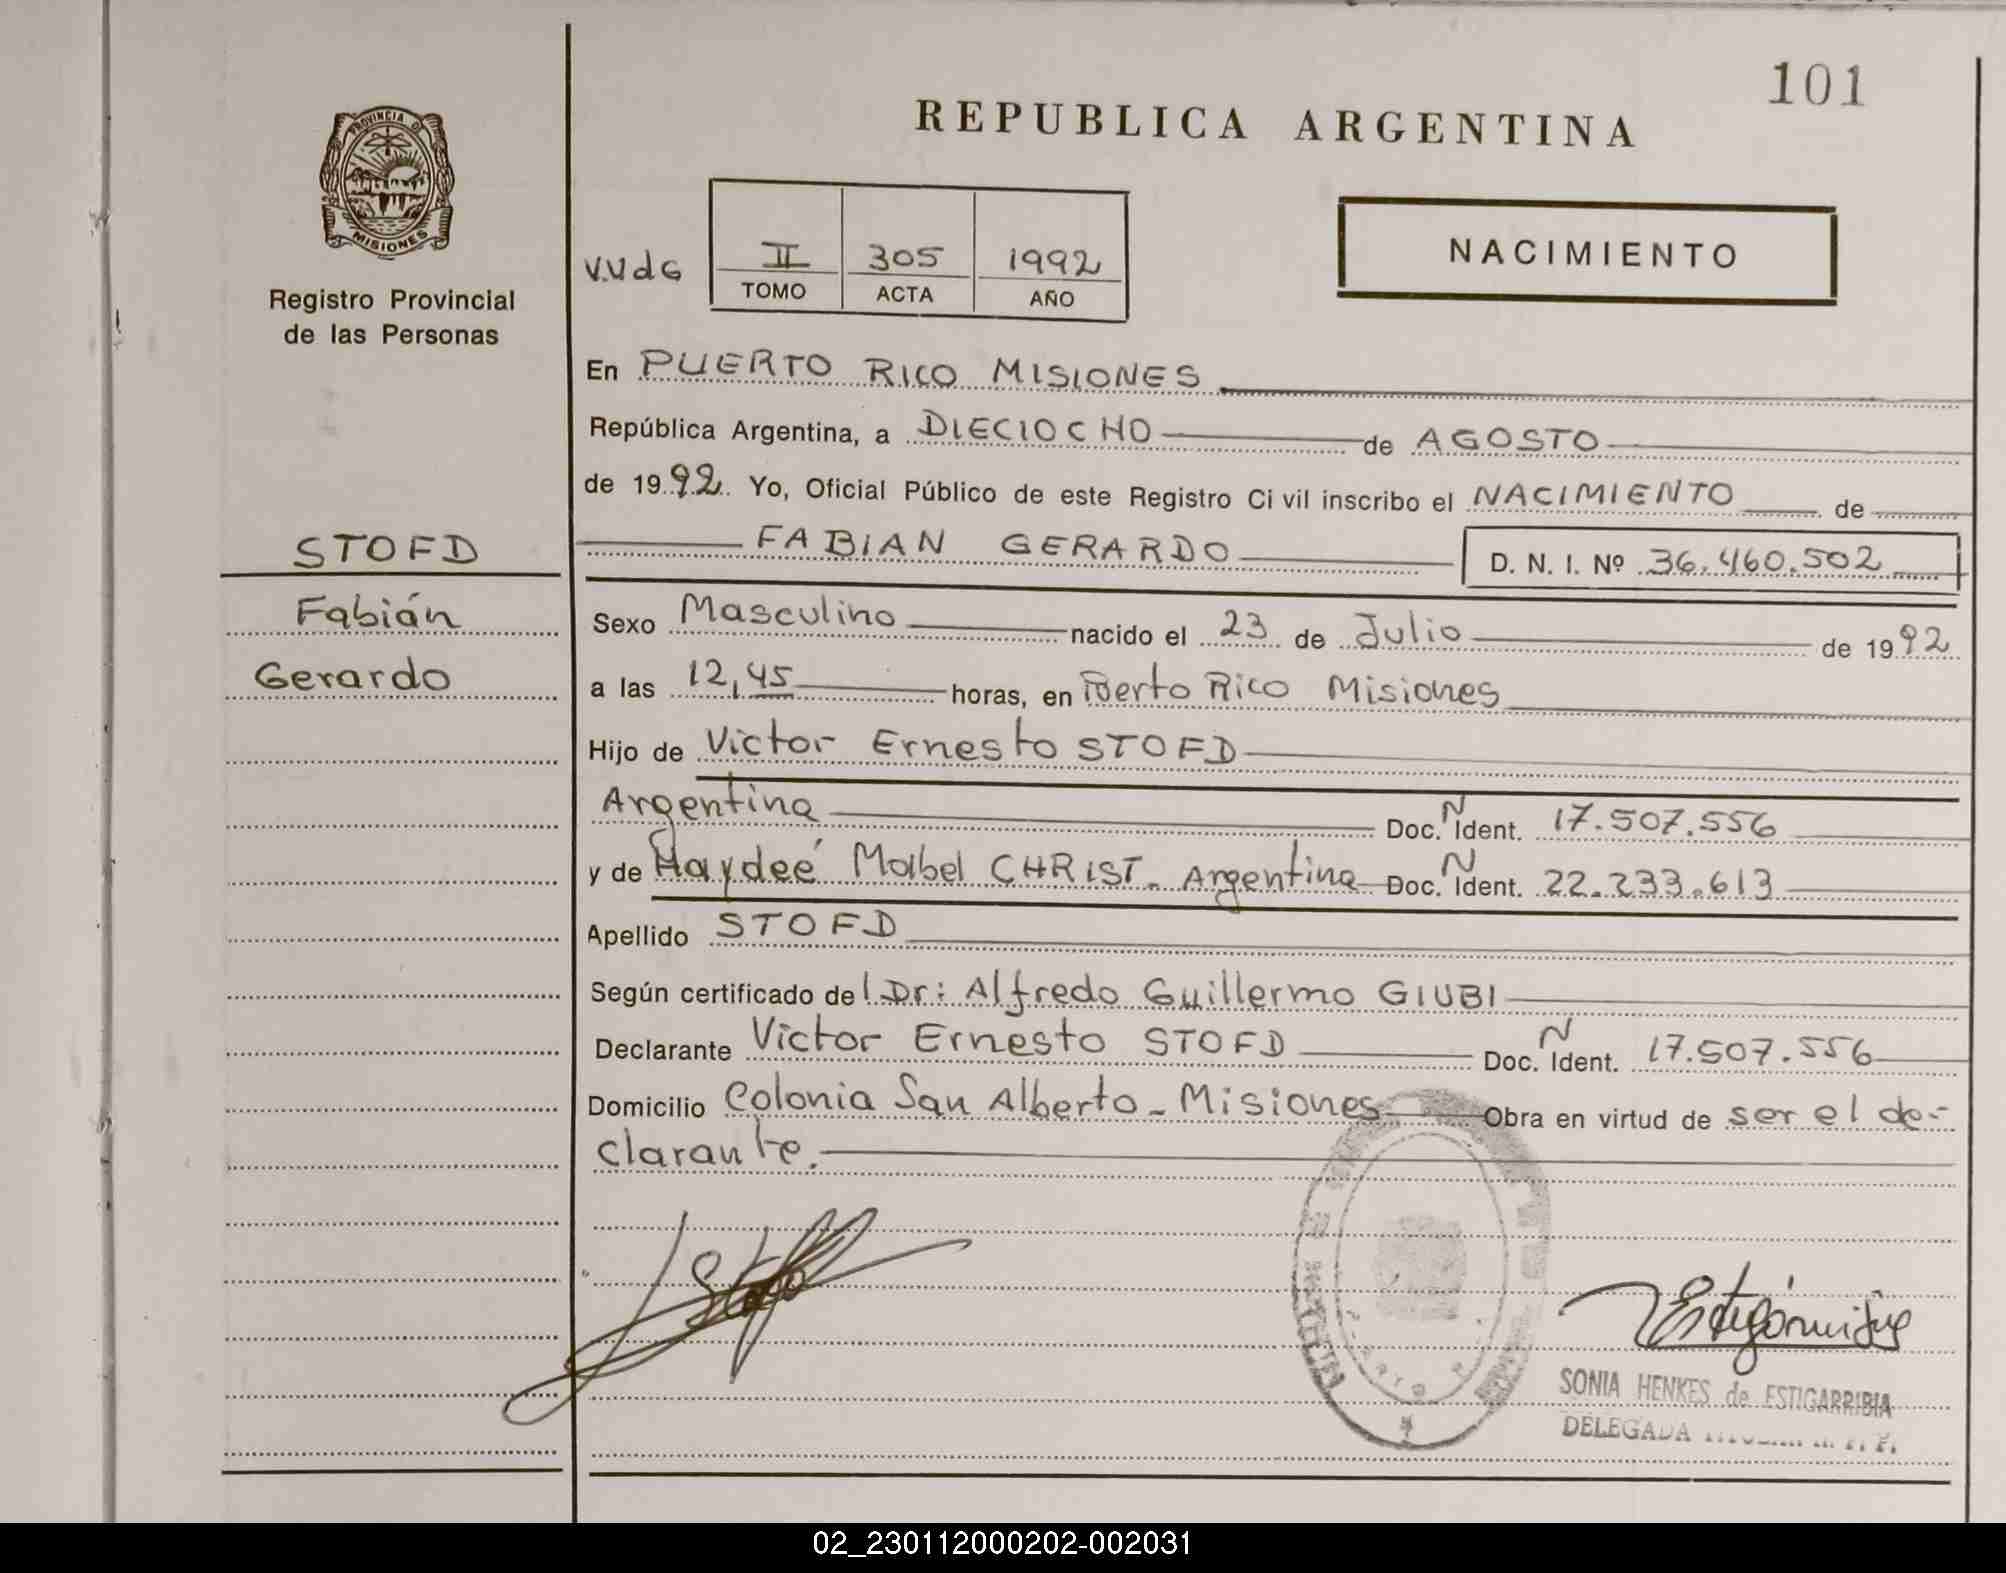 101
REPUBLICA ARGENTINA
PROVINCIA DE
MISIONES
Registro Provincial
de las Personas
V.V de G
II 305 1992
TOMO ACTA AÑO
NACIMIENTO
En PUERTO RICO MISIONES
República Argentina, a DIECIOCHO de AGOSTO
de 1992. Yo, Oficial Público de este Registro Civil inscribo el NACIMIENTO de
STOFD
FABIAN GERARDO D. N. I. Nº 36.460.502
Fabián
Sexo Masculino nacido el 23 de Julio de 1992
Gerardo
a las 12,45 horas, en Puerto Rico Misiones
Hijo de Victor Ernesto STOFD
Argentina Doc. N Ident. 17.507.556
y de Haydeé Mabel CHRIST. Argentina Doc. N Ident. 22.233.613
Apellido STOFD
Según certificado del Dr: Alfredo Guillermo GIUBI
Declarante Victor Ernesto STOFD Doc. N Ident. 17.507.556
Domicilio Colonia San Alberto - Misiones Obra en virtud de ser el de-
clarante.
SONIA HENKES de ESTIGARRIBIA
DELEGADA
02_230112000202-002031